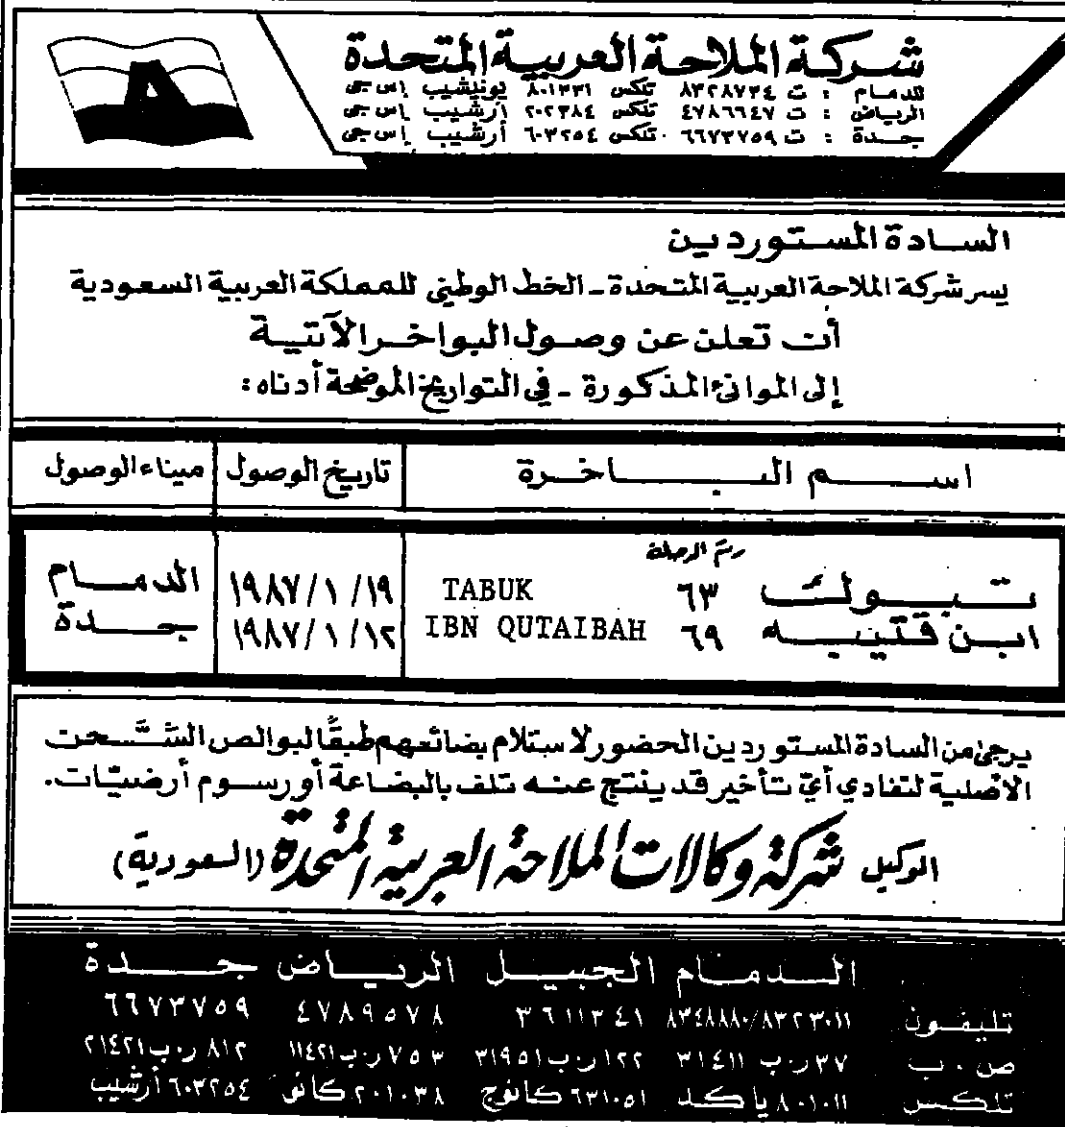 شركة الملاحة العربية المتحدة
الدمام : ت ٨٣٢٨٧٣٤ تلكس ٨٠١٣٣١ يونيشيب إس جي
الرياض : ت ٤٧٨٦٦٤٧ تلكس ٢٠٢٣٨٤ أرشيب إس جي
جدة : ت ٦٦٧٣٧٥٩ تلكس ٦٠٣٢٥٤ أرشيب إس جي
السادة المستوردين
يسر شركة الملاحة العربية المتحدة - الخط الوطني للمملكة العربية السعودية
أن تعلن عن وصول البواخر الآتية
إلى الموانئ المذكورة - في التواريخ الموضحة أدناه :
اسم الباخرة تاريخ الوصول ميناء الوصول
رقم الرحلة
تبوك ٦٣ TABUK ١٩٨٧/١/١٩ الدمام
ابن قتيبه ٦٩ IBN QUTAIBAH ١٩٨٧/١/١٢ جدة
يرجى من السادة المستوردين الحضور لاستلام بضائعهم طبقًا لبوالص الشحن
الأصلية لتفادي أي تأخير قد ينتج عنه تلف بالبضاعة أو رسوم أرضيّات.
الوكيل شركة وكالات الملاحة العربية المتحدة (السعودية)
الدمام الجبيل الرياض جدة
تليفون ٨٣٤٨٨٨٠/٨٣٢٣٠١١ ٣٦١١٣٤١ ٤٧٨٩٥٧٨ ٦٦٧٣٧٥٩
ص . ب ٣٧ ر.ب ٣١٤١١ ١٢٢ ر.ب ٣١٩٥١ ٧٥٣ ر.ب ١١٤٢١ ٨١٢ ر.ب ٢١٤٢١
تلكس ٨٠١٠١١ ياكد ٦٣١٠٥١ كانوج ٢٠١٠٣٨ كانو ٦٠٣٢٥٤ أرشيب